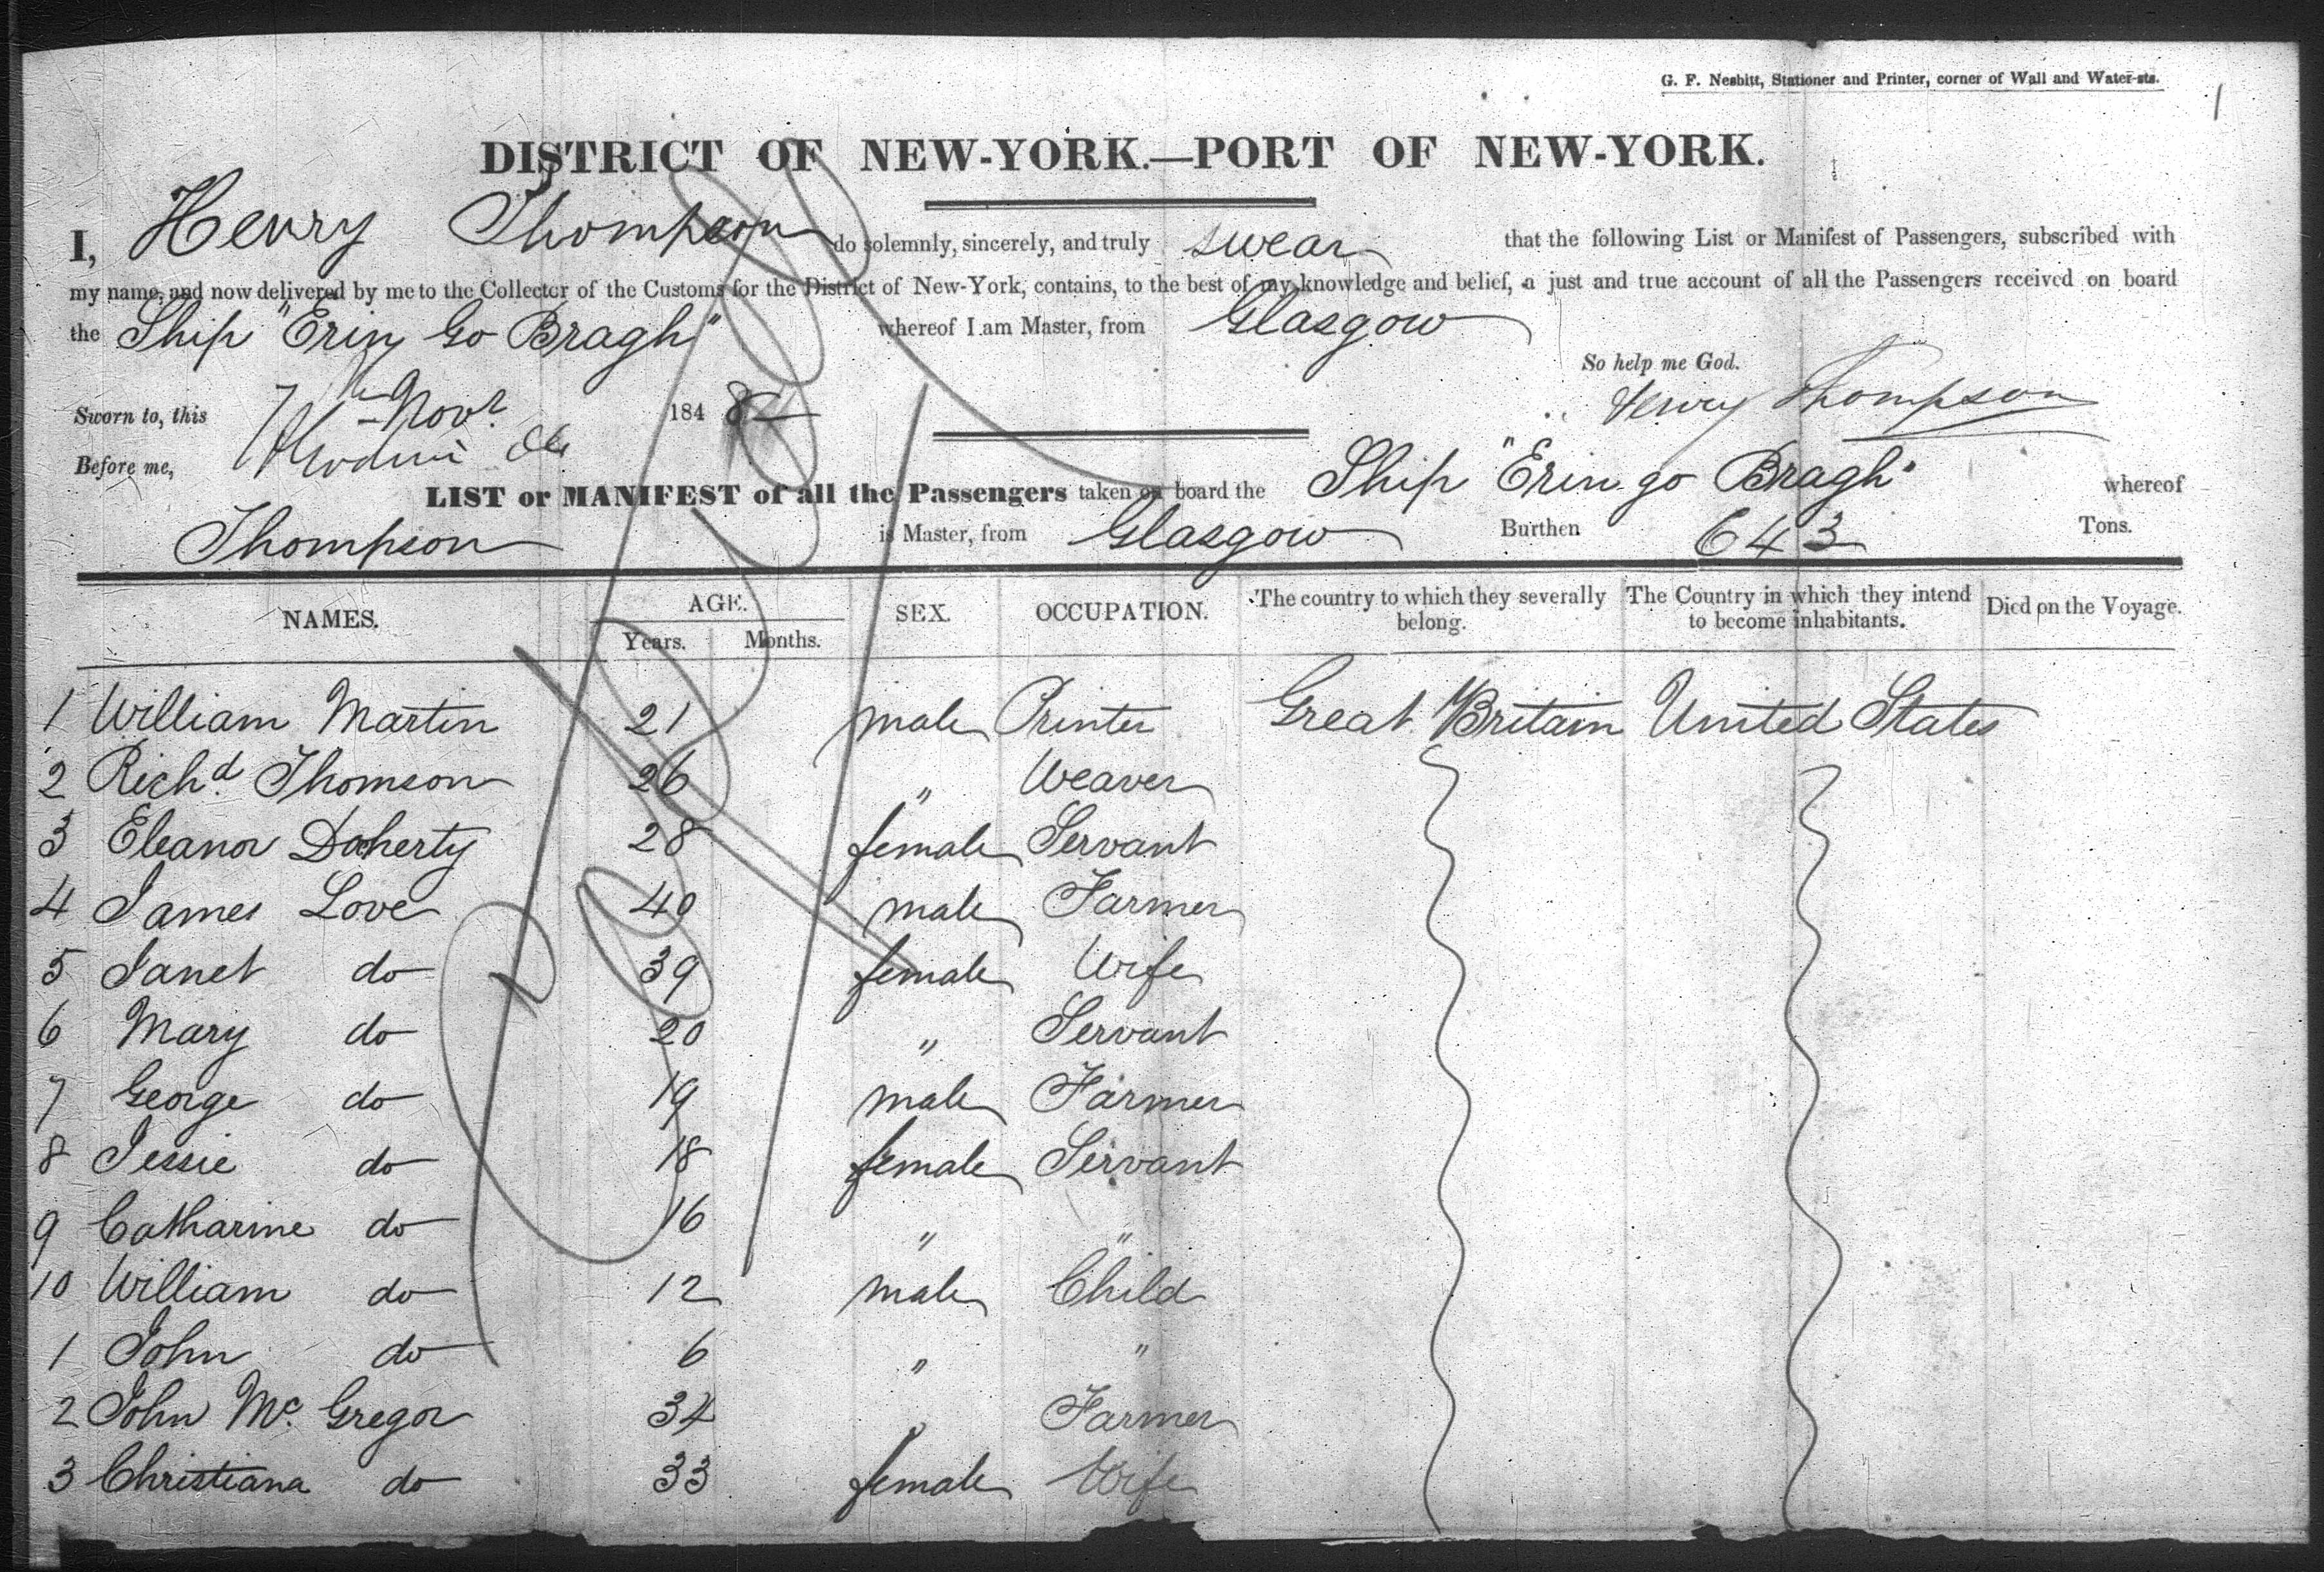 G. F. Nesbitt, Stationer and Printer, corner of Wall and Water-sts.
1
DISTRICT OF NEW-YORK.—PORT OF NEW-YORK.
I, Henry Thompson do solemnly, sincerely, and truly swear that the following List or Manifest of Passengers, subscribed with
my name, and now delivered by me to the Collector of the Customs for the District of New-York, contains, to the best of my knowledge and belief, a just and true account of all the Passengers received on board
the Ship "Erin Go Bragh" whereof I am Master, from Glasgow
So help me God.
Sworn to, this 7th Novr 1848 Henry Thompson
Before me,
LIST or MANIFEST of all the Passengers taken on board the Ship "Erin go Bragh" whereof
Thompson is Master, from Glasgow Burthen 643 Tons.
NAMES. AGE. Years. Months. SEX. OCCUPATION. The country to which they severally belong. The Country in which they intend to become inhabitants. Died on the Voyage.
1 William Martin 21 male Printer Great Britain United States
2 Richd. Thomson 26 " Weaver
3 Eleanor Doherty 28 female Servant
4 James Love 40 male Farmer
5 Janet do 39 female Wife
6 Mary do 20 " Servant
7 George do 19 male Farmer
8 Jessie do 18 female Servant
9 Catharine do 16 " "
10 William do 12 male Child
1 John do 6 " "
2 John Mc. Gregor 34 " Farmer
3 Christiana do 33 female Wife